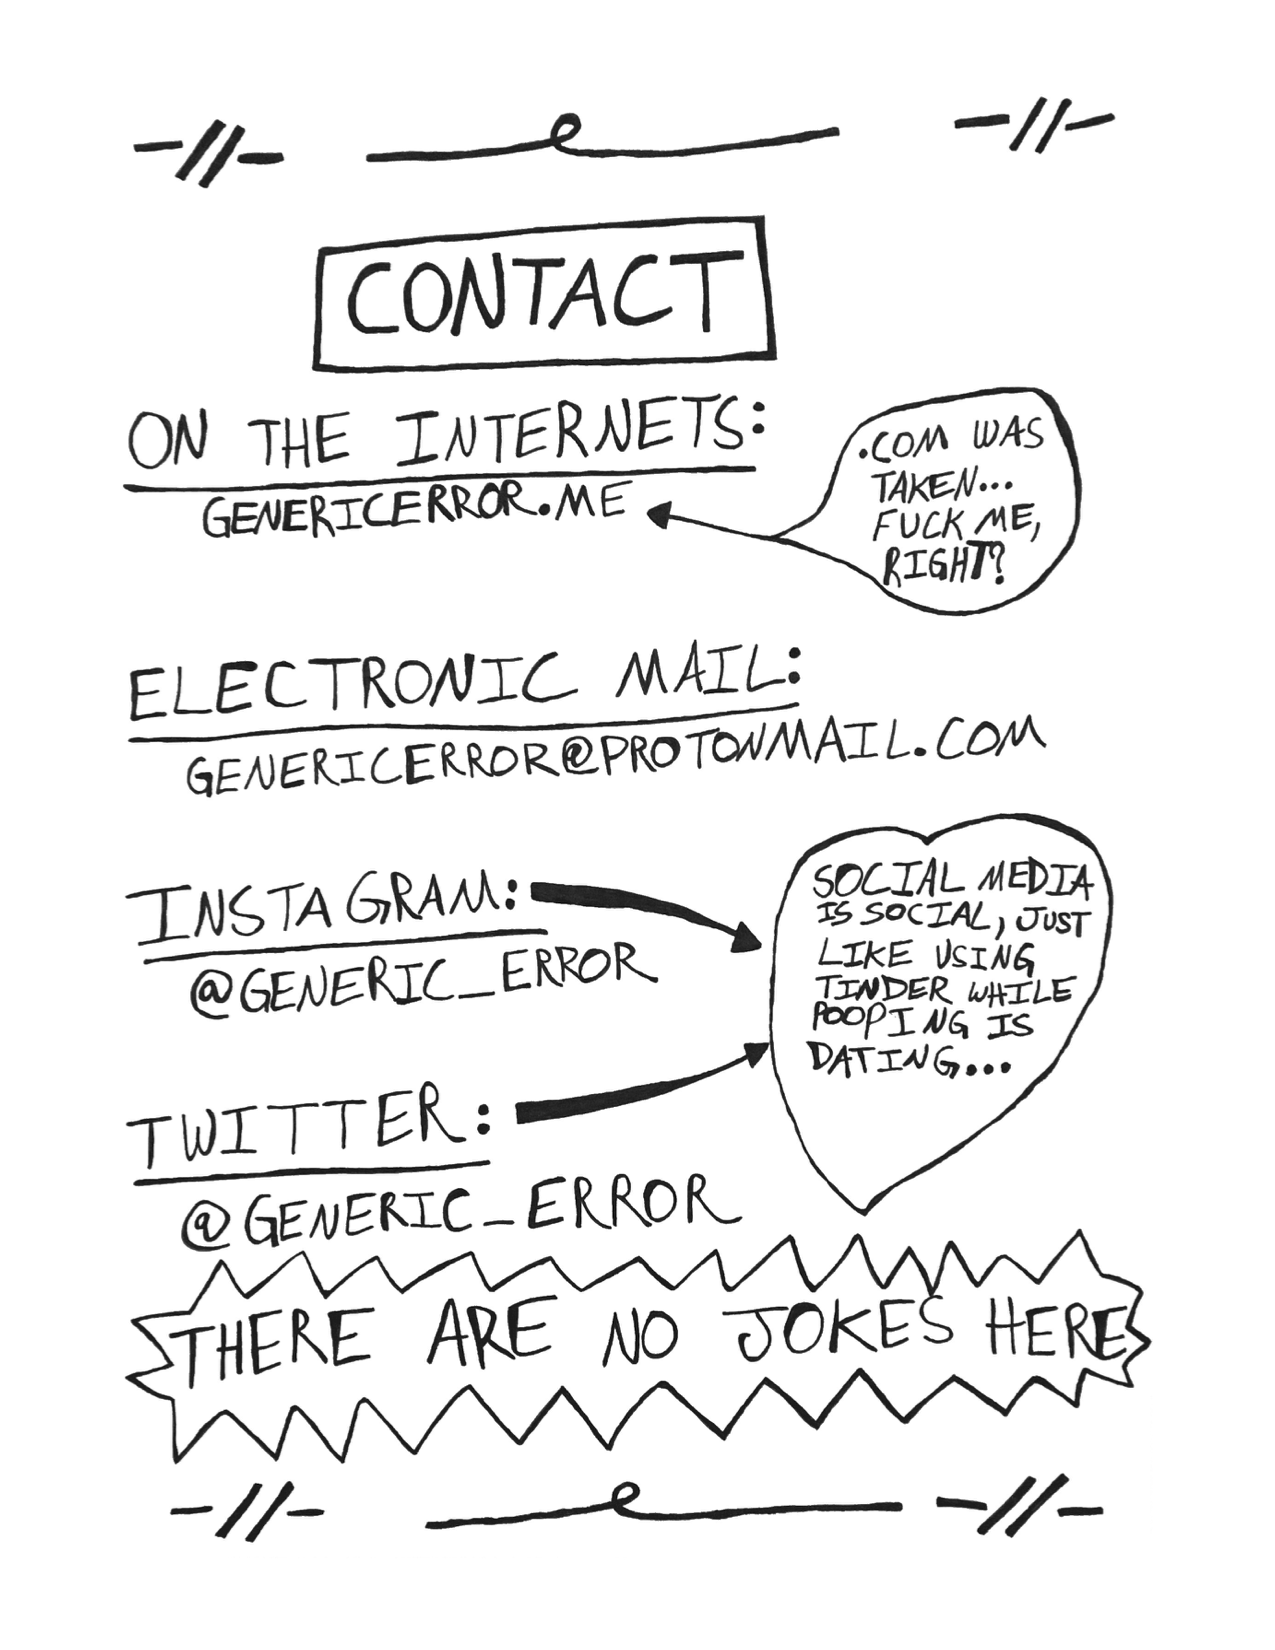 CONTACT
ON THE INTERNETS:
GENERICERROR.ME
.COM WAS
TAKEN...
FUCK ME,
RIGHT?
ELECTRONIC MAIL:
GENERICERROR@PROTONMAIL.COM
INSTAGRAM:
@GENERIC_ERROR
SOCIAL MEDIA
IS SOCIAL, JUST
LIKE USING
TINDER WHILE
POOPING IS
DATING...
TWITTER:
@GENERIC_ERROR
THERE ARE NO JOKES HERE